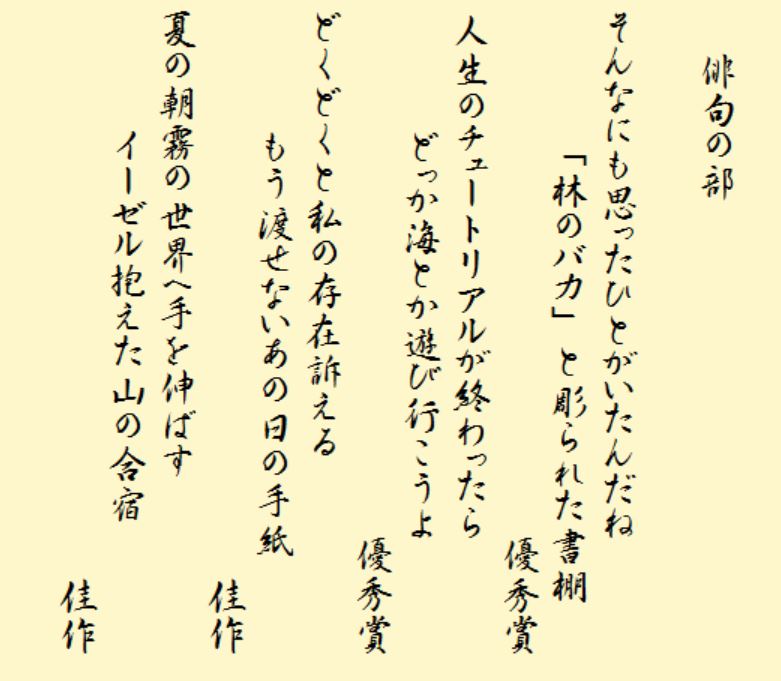 俳句の部
そんなにも思ったひとがいたんだね
「林のバカ」と彫られた書棚
優秀賞
人生のチュートリアルが終わったら
どっか海とか遊び行こうよ
優秀賞
どくどくと私の存在訴える
もう渡せないあの日の手紙
佳作
夏の朝霧の世界へ手を伸ばす
イーゼル抱えた山の合宿
佳作